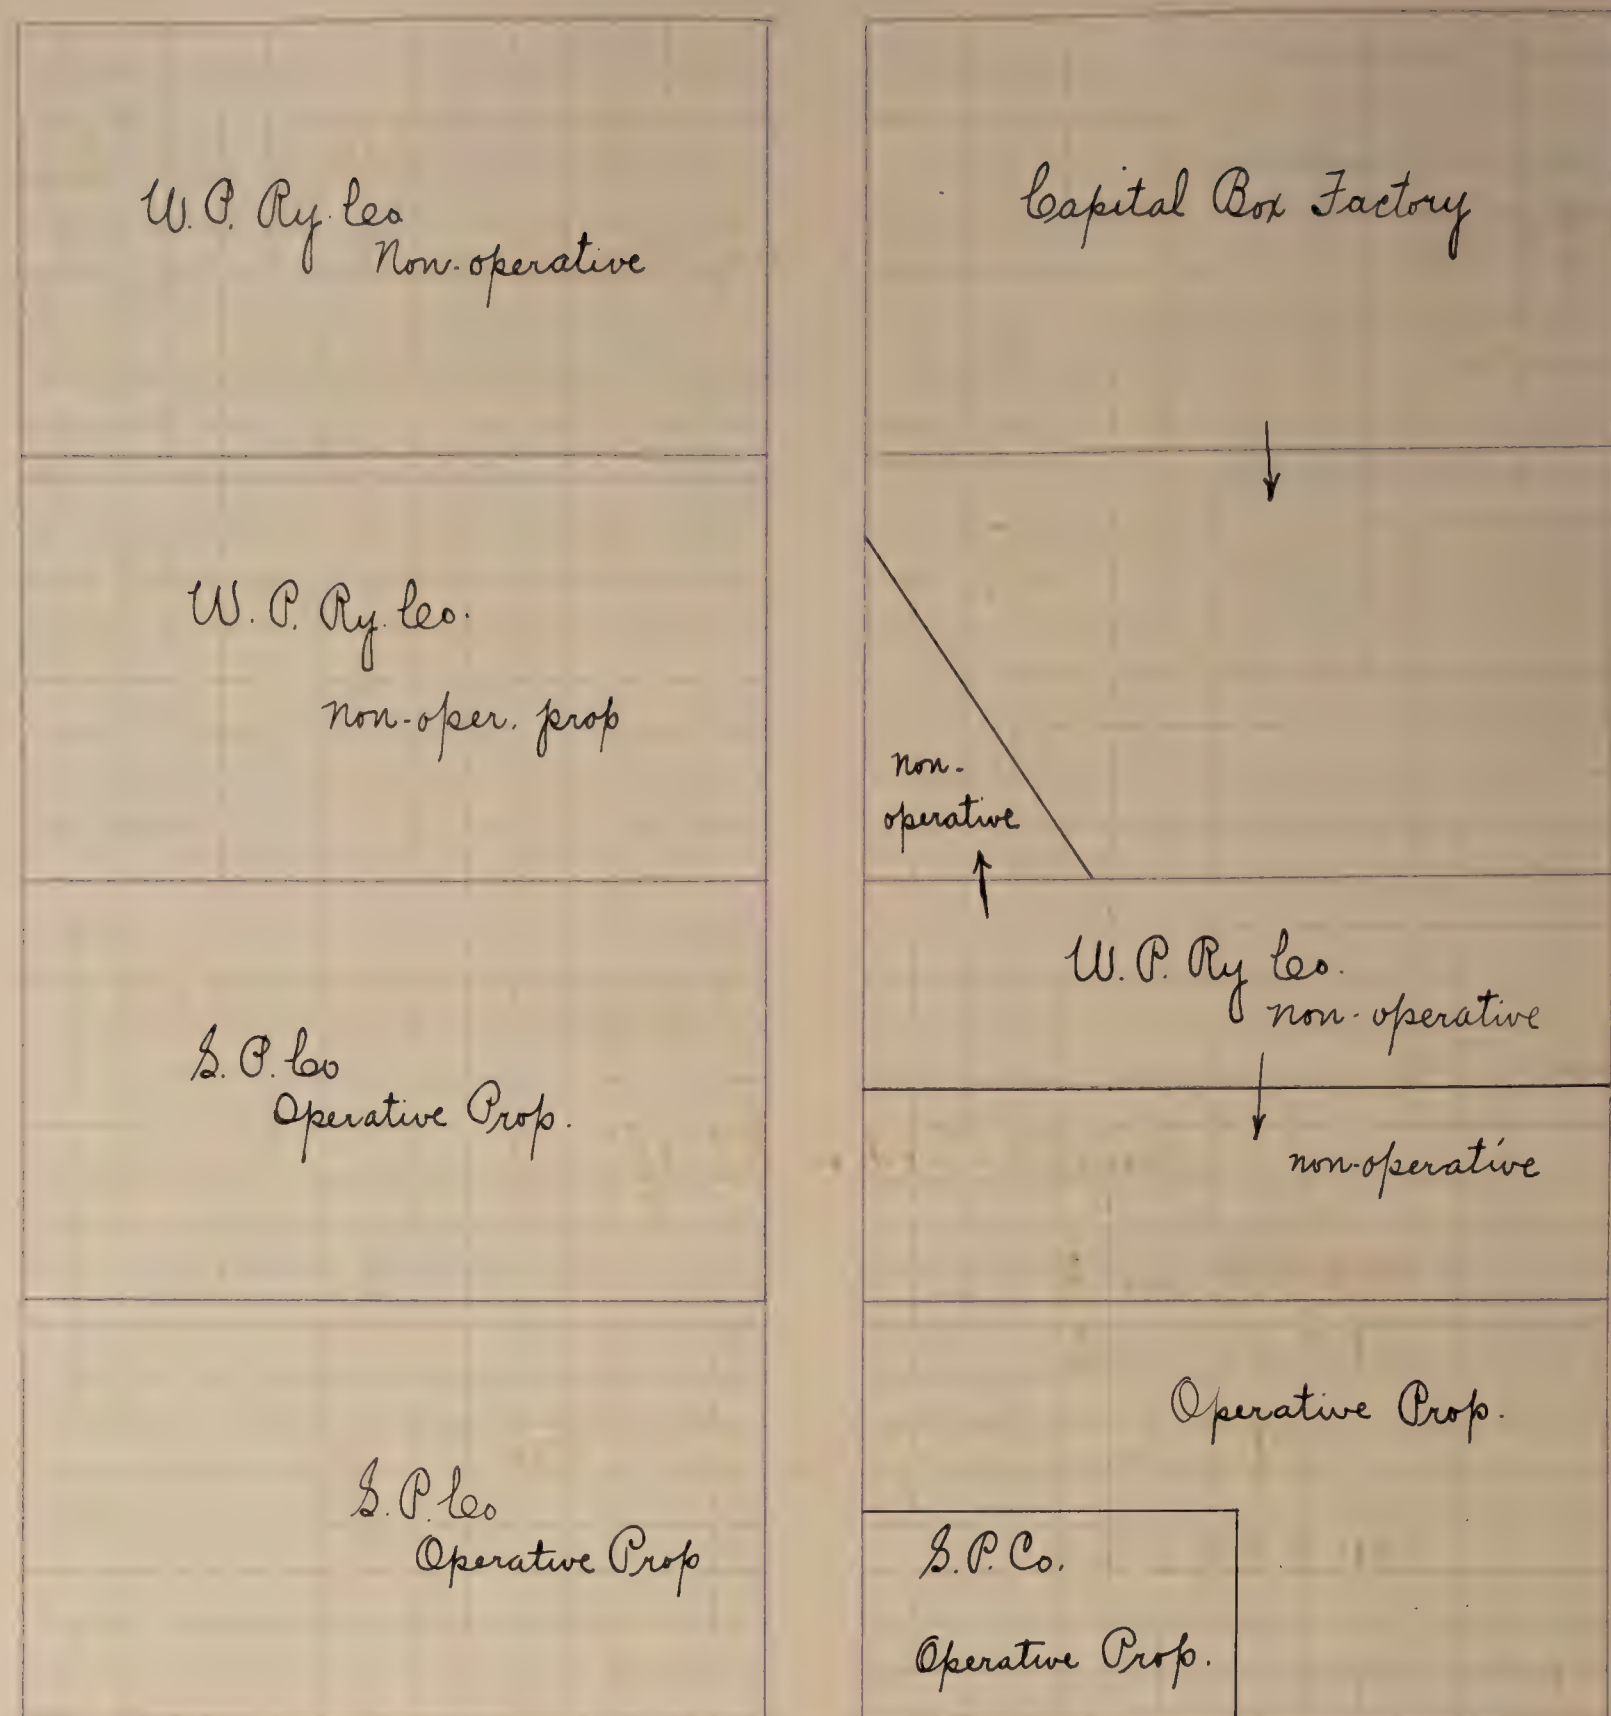 W. P. Ry. Co
Non-operative
W. P. Ry. Co.
non-oper. prop
S. P. Co
Operative Prop.
S. P. Co
Operative Prop
Capital Box Factory
non-
operative
W. P. Ry Co.
non-operative
non-operative
Operative Prop.
S. P. Co.
Operative Prop.